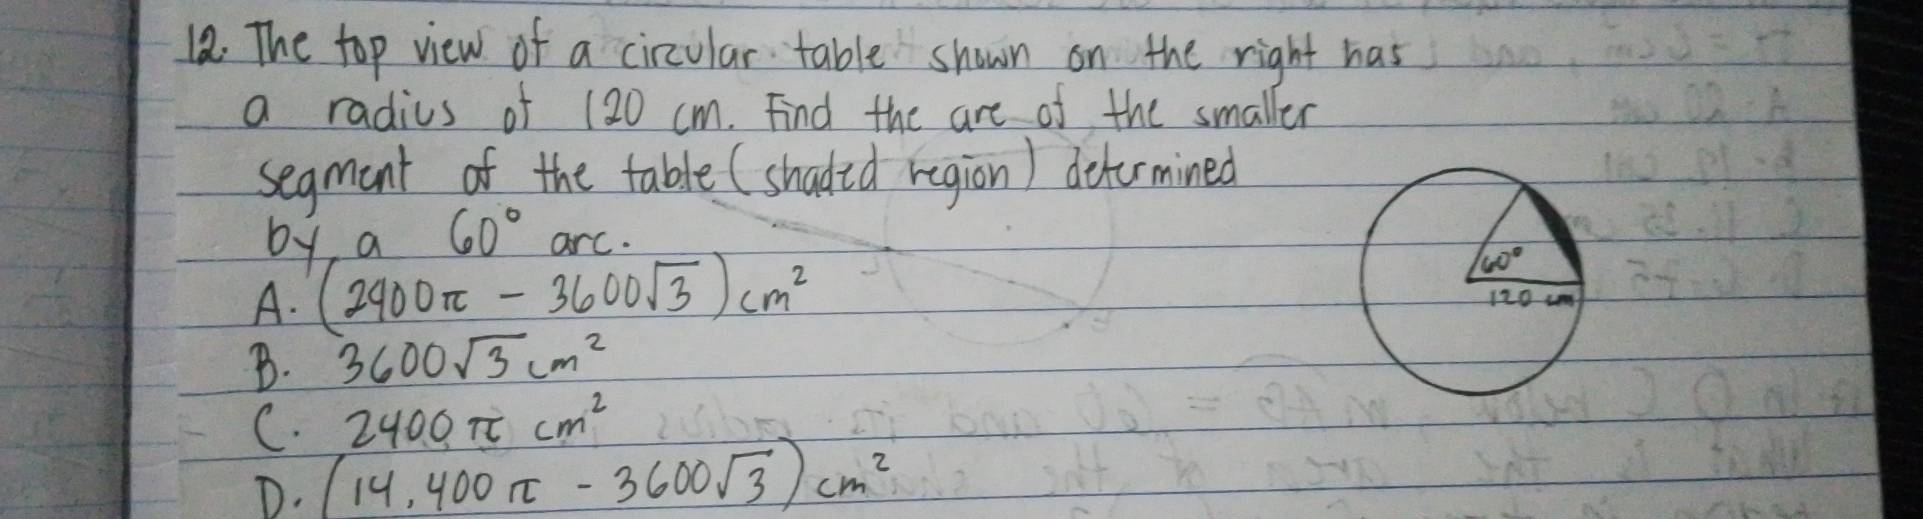 12. The top view of a circular table shown on the right has
a radius of 120 cm. Find the are of the smaller
segment of the table (shaded region) determined
by a 60° arc.
A. (2400π - 3600√3) cm²
B. 3600√3 cm²
C. 2400 π cm²
D. (14,400 π - 3600√3) cm²
60°
120 cm